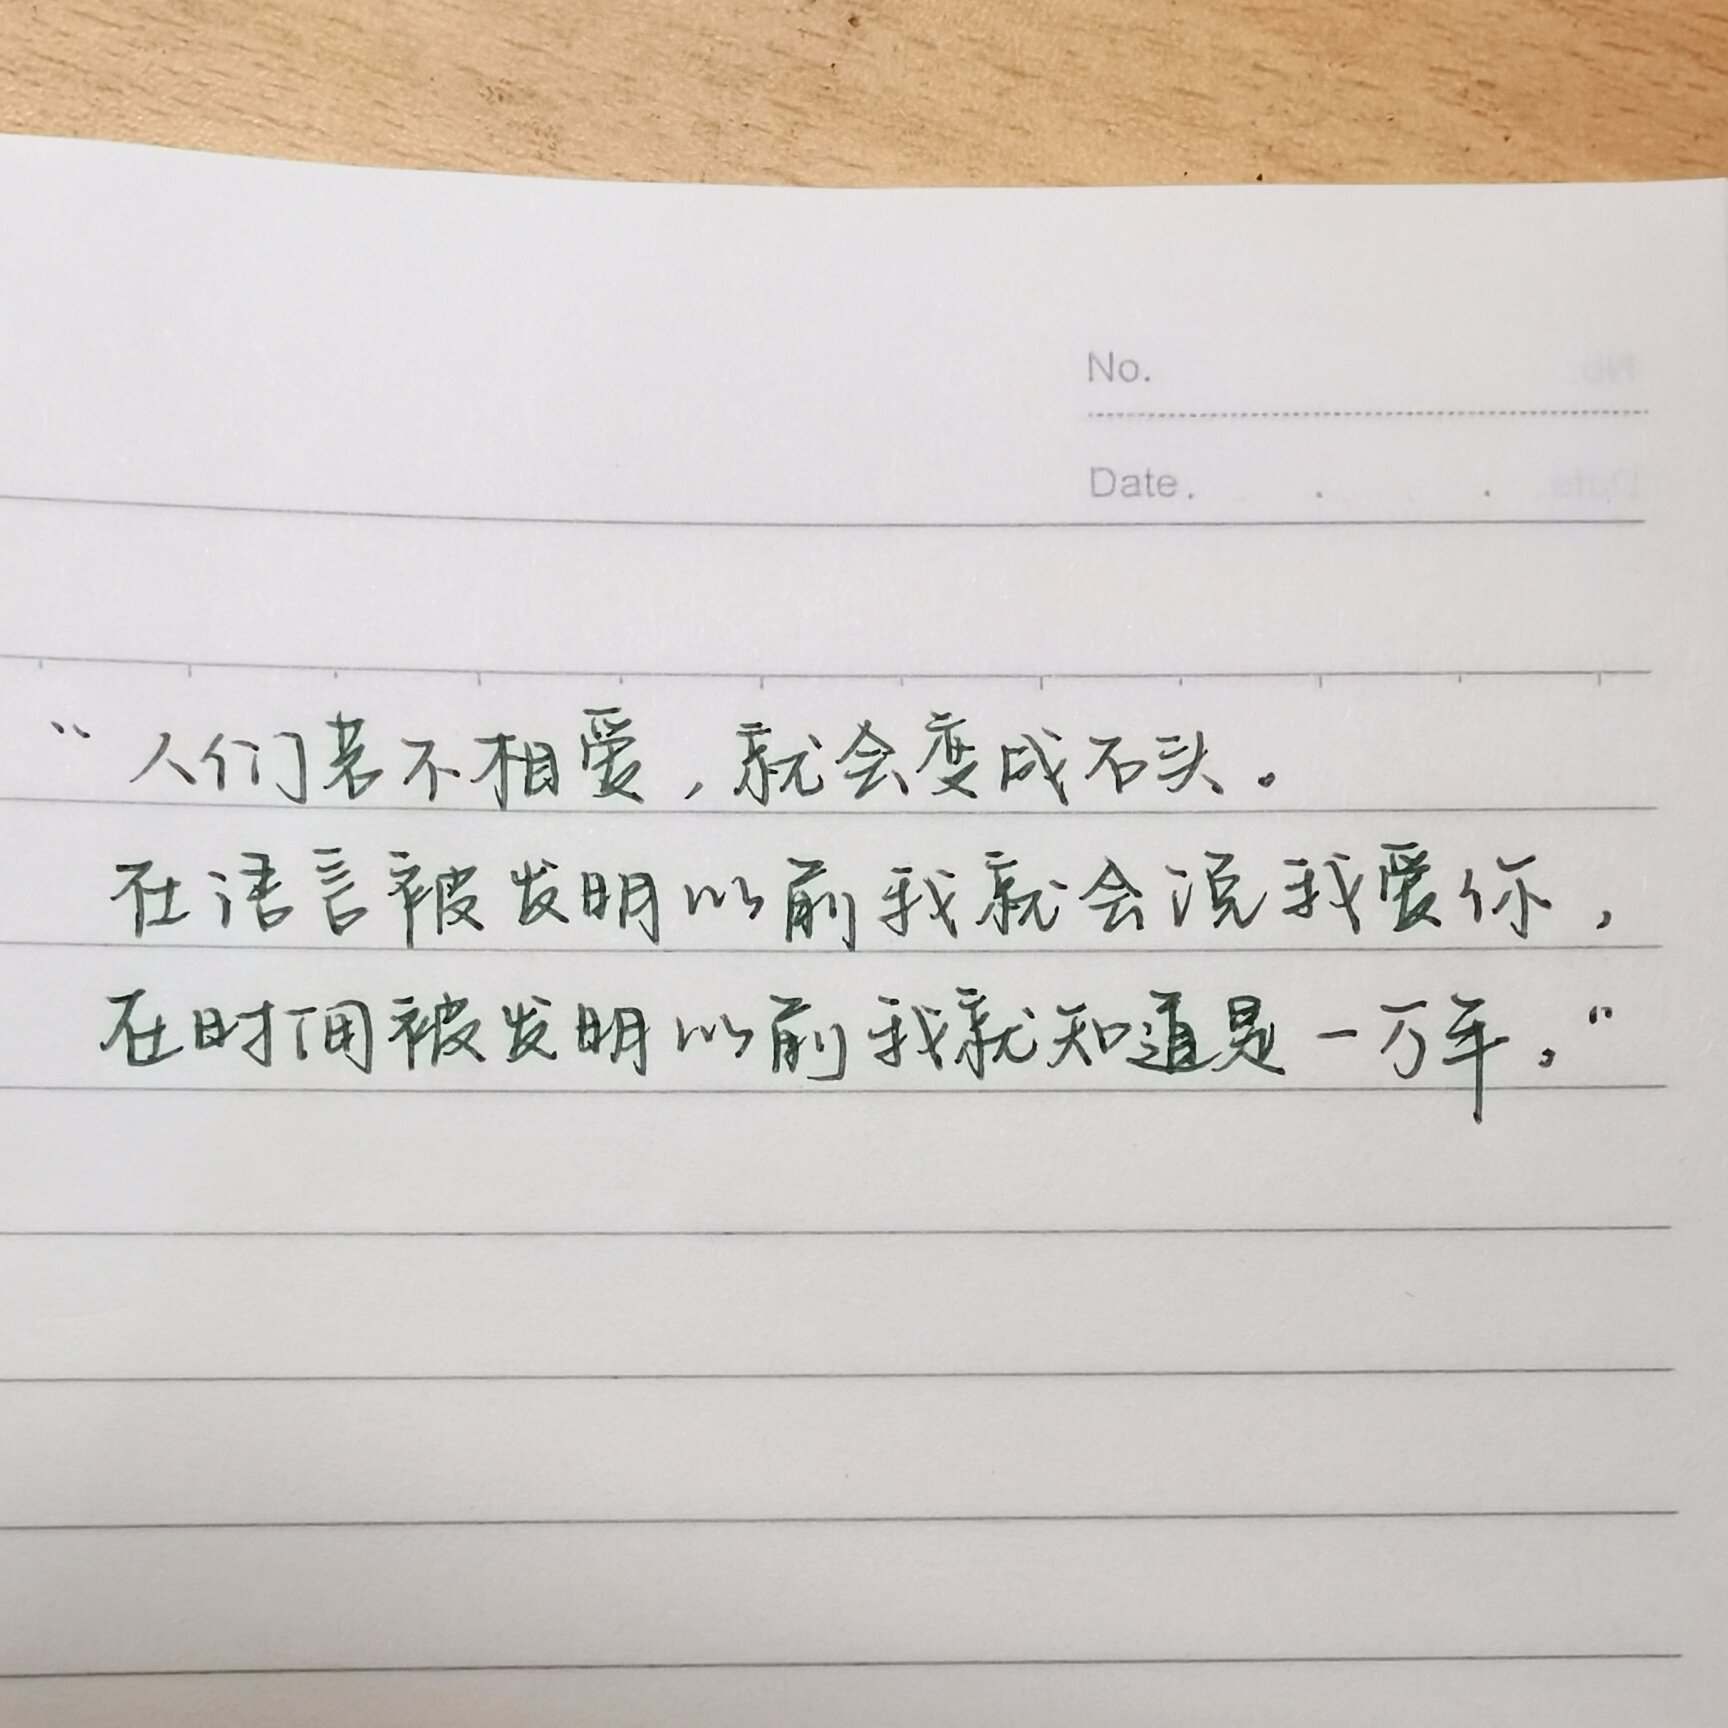 No.
Date.
“人们若不相爱，就会变成石头。
在语言被发明以前我就会说我爱你，
在时间被发明以前我就知道是一万年。”